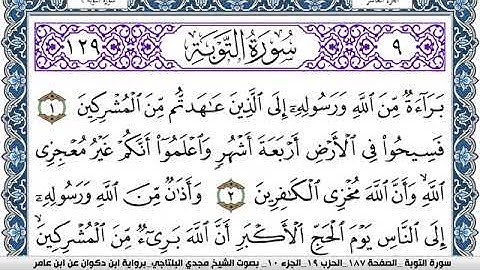 ٩ سُورَةُ التَّوْبَةِ ١٢٩
بَرَآءَةٌ مِّنَ ٱللَّهِ وَرَسُولِهِۦٓ إِلَى ٱلَّذِينَ عَٰهَدتُّم مِّنَ ٱلْمُشْرِكِينَ ١
فَسِيحُوا۟ فِى ٱلْأَرْضِ أَرْبَعَةَ أَشْهُرٍ وَٱعْلَمُوٓا۟ أَنَّكُمْ غَيْرُ مُعْجِزِى
ٱللَّهِ وَأَنَّ ٱللَّهَ مُخْزِى ٱلْكَٰفِرِينَ ٢ وَأَذَٰنٌ مِّنَ ٱللَّهِ وَرَسُولِهِۦٓ
إِلَى ٱلنَّاسِ يَوْمَ ٱلْحَجِّ ٱلْأَكْبَرِ أَنَّ ٱللَّهَ بَرِىٓءٌ مِّنَ ٱلْمُشْرِكِينَ
سورة التوبة _الصفحة ١٨٧_ الحزب ١٩_الجزء ١٠_ بصوت الشيخ مجدي البلتاجي_برواية ابن ذكوان عن ابن عامر